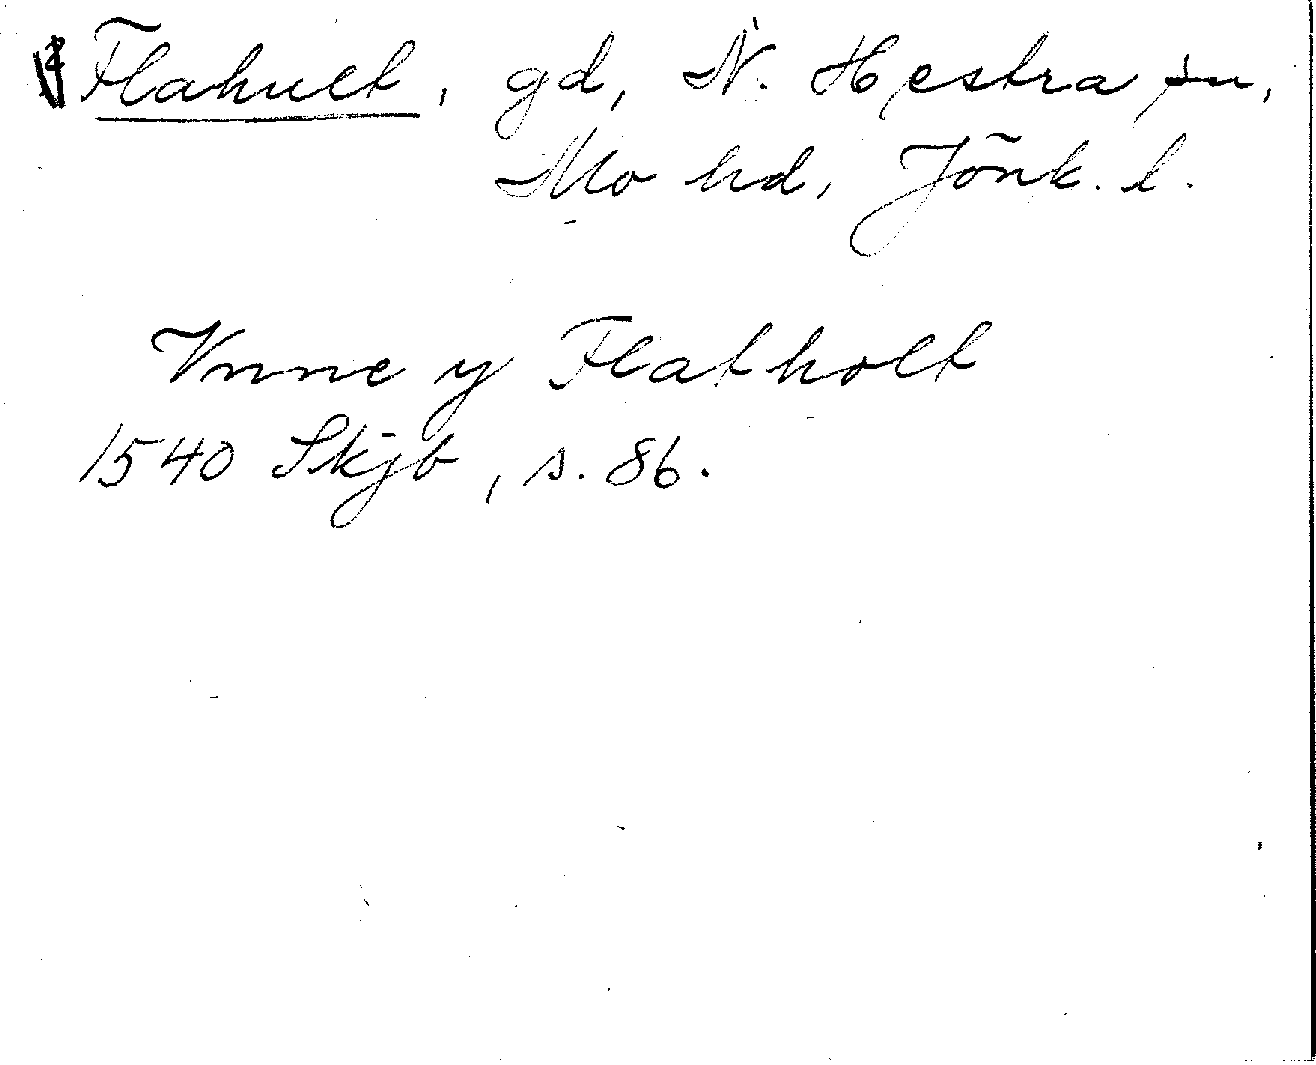 Flahult, gd, N. Hestra sn,
Mo hd, Jönk. l.
Vnne y Flatholt
1540 Skjb, s. 86.